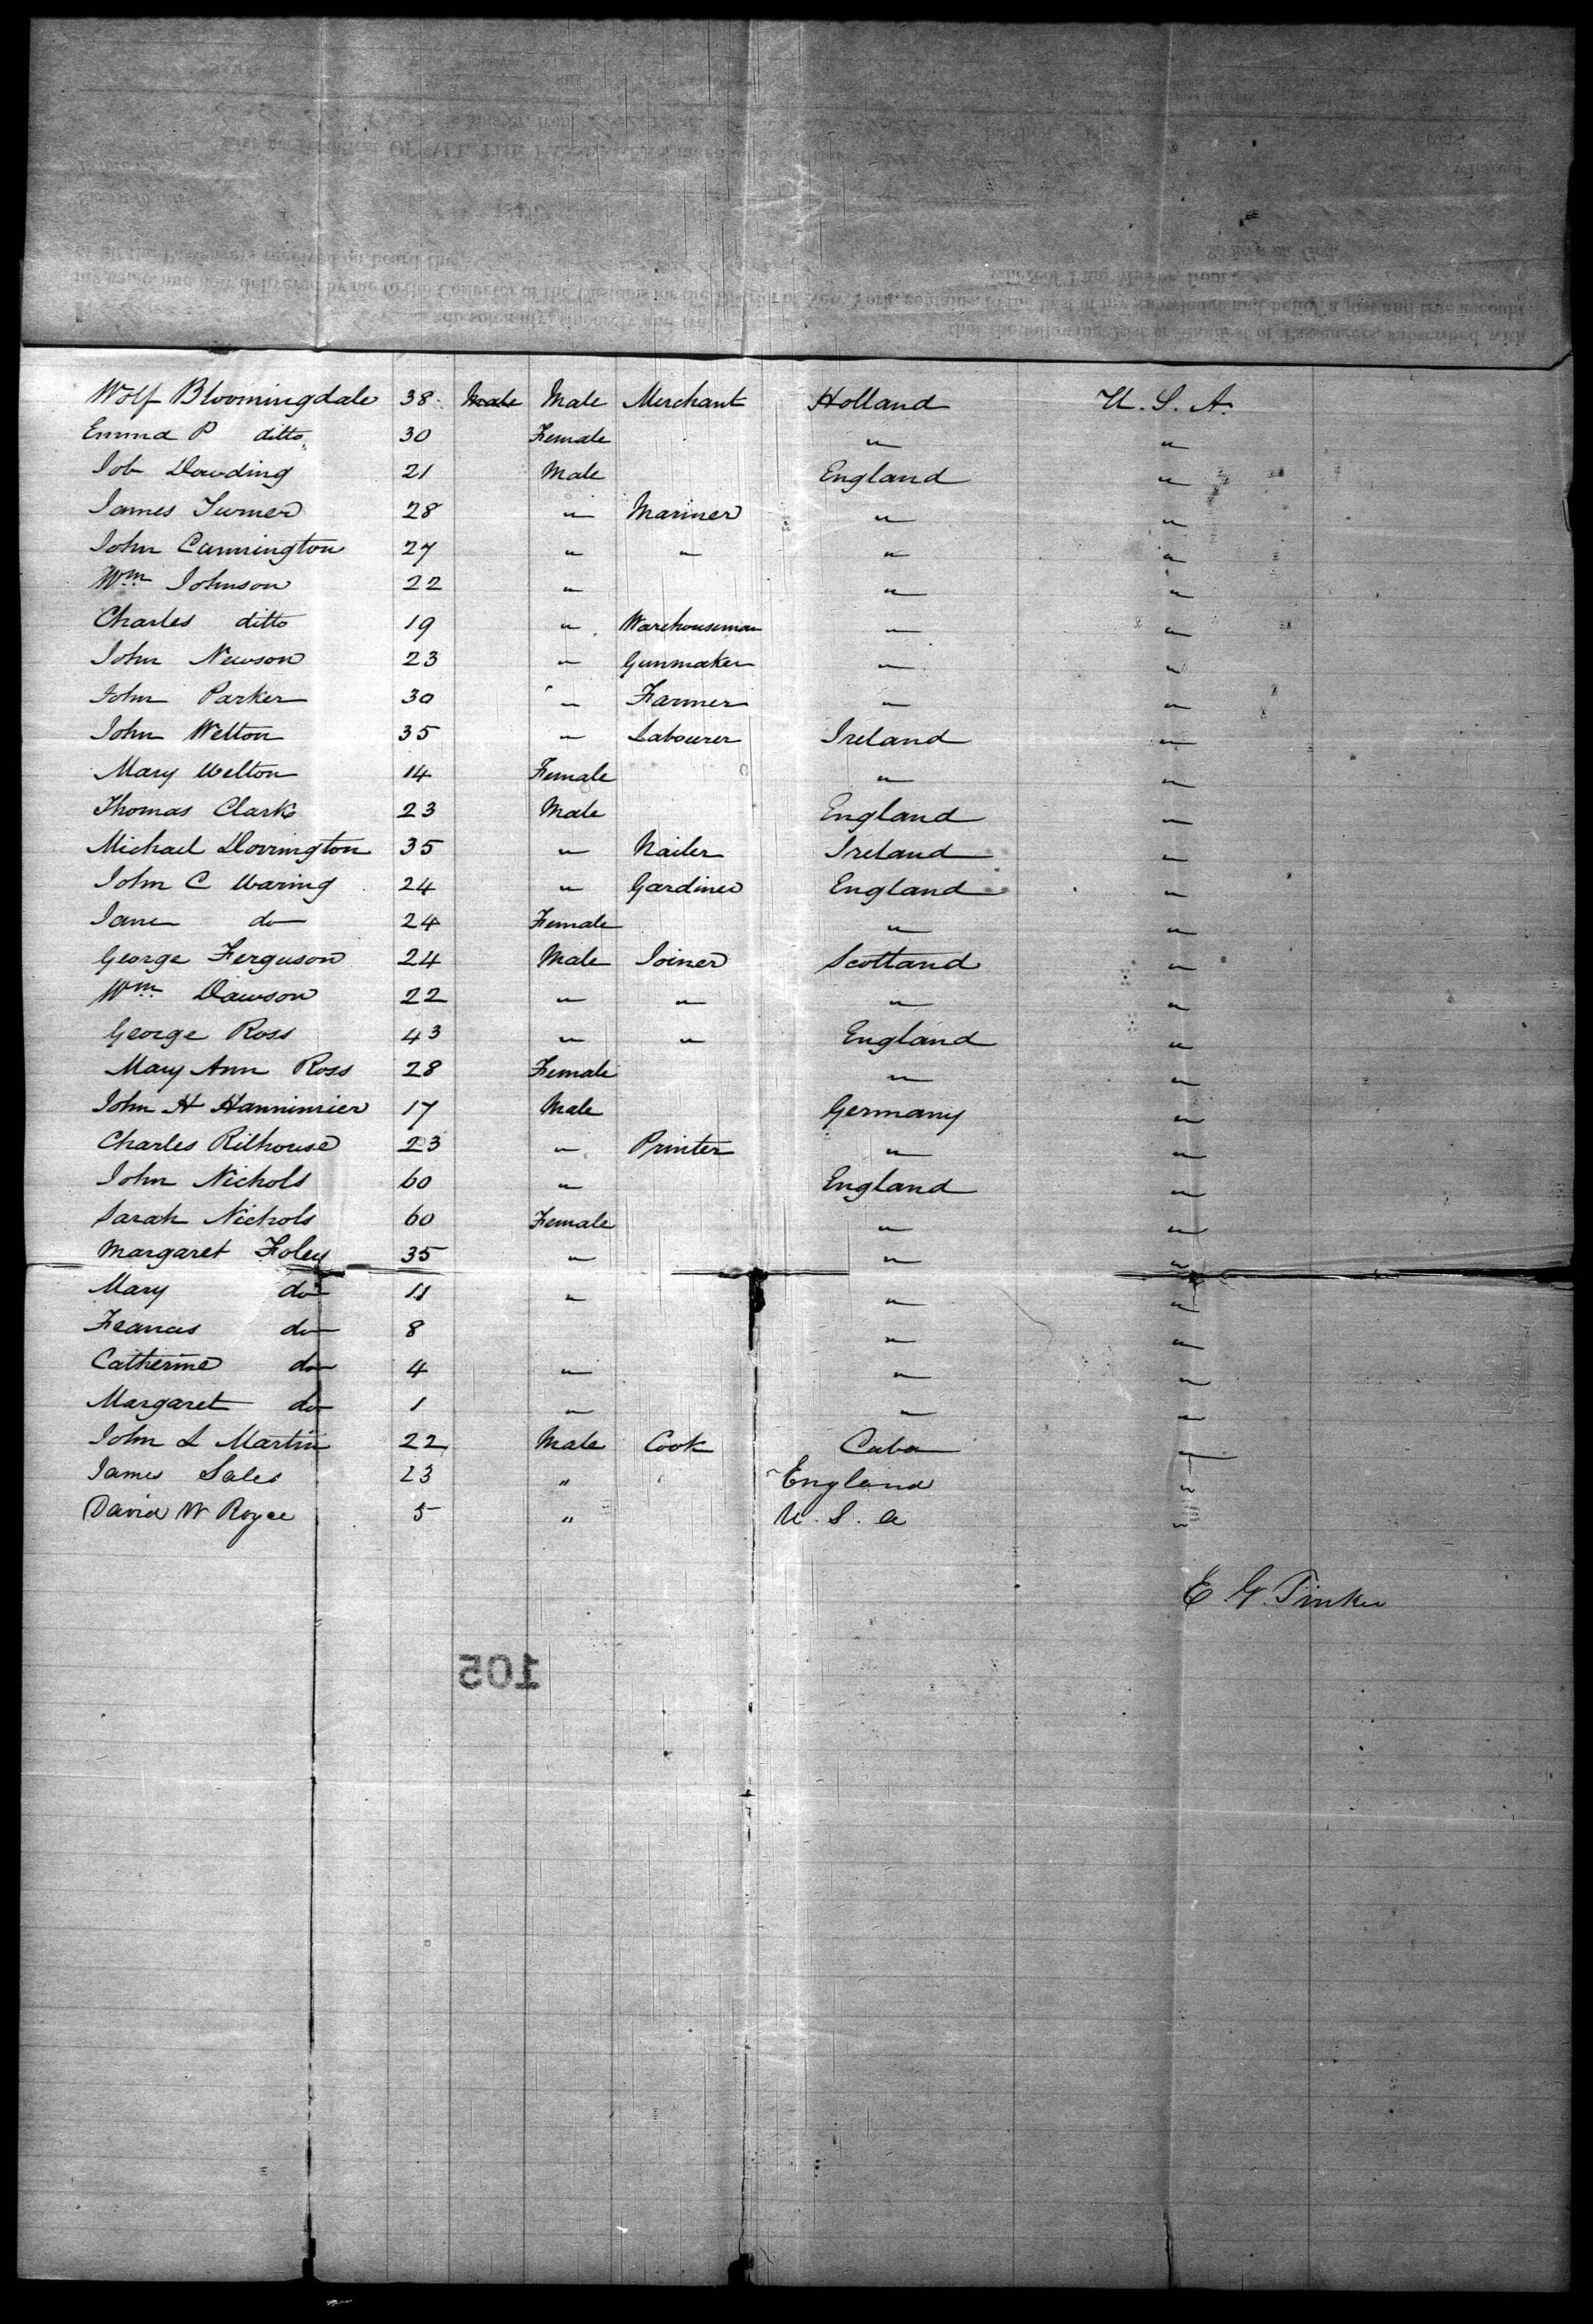 Wolf Bloomingdale 38 Male Male Merchant Holland U. S. A.
Emma P ditto 30 Female " "
Job Dowding 21 Male England "
James Turner 28 " Mariner " "
John Cannington 27 " " " "
Wm Johnson 22 " " "
Charles ditto 19 " Warehouseman " "
John Newson 23 " Gunmaker " "
John Parker 30 " Farmer " "
John Welton 35 " Labourer Ireland "
Mary Welton 14 Female " "
Thomas Clark 23 Male England "
Michael Dorrington 35 " Nailer Ireland "
John C Waring 24 " Gardiner England "
Jane do 24 Female " "
George Ferguson 24 Male Joiner Scotland "
Wm Dawson 22 " " " "
George Ross 43 " " England "
Mary Ann Ross 28 Female " "
John H Hannimier 17 Male Germany "
Charles Rilhouse 23 " Printer " "
John Nichols 60 " England "
Sarah Nichols 60 Female " "
Margaret Foley 35 " " "
Mary do 11 " " "
Frances do 8 " "
Catherine do 4 " " "
Margaret do 1 " " "
John L Martin 22 Male Cook Cuba "
James Sales 23 " England "
David W Royce 5 " U. S. a "
E G. Tinker
105